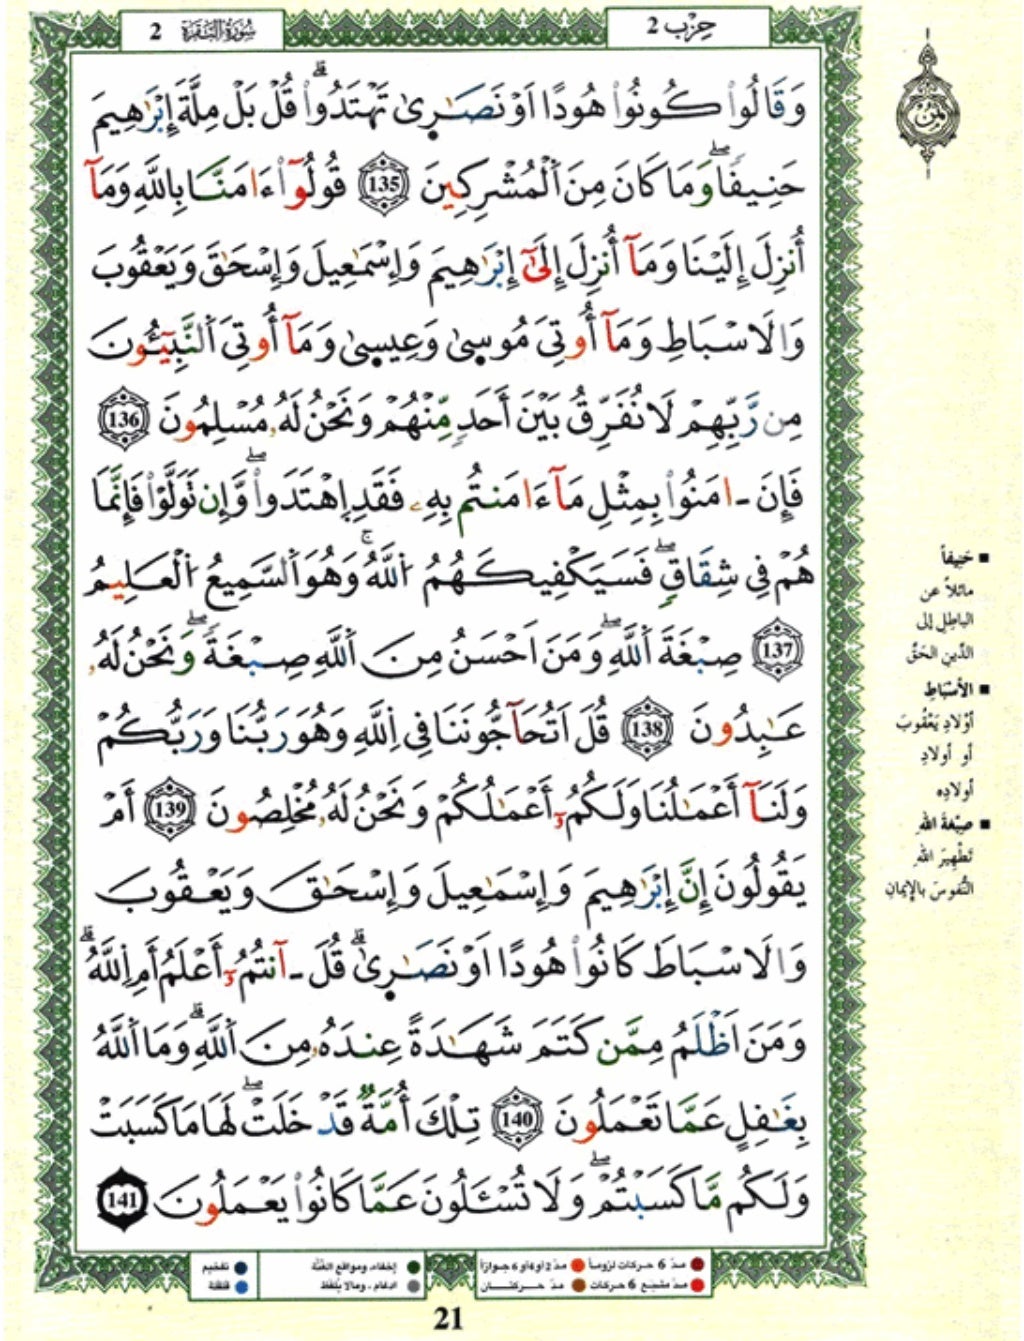 سُورَةُ الْبَقَرَة 2
حِزْب 2
ثمن
وَقَالُواْ كُونُواْ هُودًا اَوْ نَصَٰرٜىٰ تَهْتَدُواْۗ قُلْ بَلْ مِلَّةَ إِبْرَٰهِيمَ
حَنِيفٗاۖ وَمَا كَانَ مِنَ اَ۬لْمُشْرِكِينَ 135 قُولُوٓاْ ءَامَنَّا بِاللَّهِ وَمَآ
أُنزِلَ إِلَيْنَا وَمَآ أُنزِلَ إِلَىٰٓ إِبْرَٰهِيمَ وَإِسْمَٰعِيلَ وَإِسْحَٰقَ وَيَعْقُوبَ
وَالَاسْبَاطِ وَمَآ أُوتِيَ مُوسٜىٰ وَعِيسٜىٰ وَمَآ أُوتِيَ اَ۬لنَّبِيٓـُٔونَ
مِن رَّبِّهِمْ لَا نُفَرِّقُ بَيْنَ أَحَدٖ مِّنْهُمْ وَنَحْنُ لَهُۥ مُسْلِمُونَ 136
فَإِنَ ـ امَنُواْ بِمِثْلِ مَآ ءَامَنتُم بِهِۦ فَقَدِ اِ۪هْتَدَواْۖ وَّإِن تَوَلَّوْاْ فَإِنَّمَا
هُمْ فِي شِقَاقٖۖ فَسَيَكْفِيكَهُمُ اُ۬للَّهُۚ وَهُوَ اَ۬لسَّمِيعُ اُ۬لْعَلِيمُ
137 صِبْغَةَ اَ۬للَّهِۖ وَمَنَ اَحْسَنُ مِنَ اَ۬للَّهِ صِبْغَةٗۖ وَنَحْنُ لَهُۥ
عَٰبِدُونَ 138 قُلَ اَتُحَآجُّونَنَا فِي اِ۬للَّهِ وَهُوَ رَبُّنَا وَرَبُّكُمْ
وَلَنَآ أَعْمَٰلُنَا وَلَكُمُۥٓ أَعْمَٰلُكُمْ وَنَحْنُ لَهُۥ مُخْلِصُونَ 139 أَمْ
يَقُولُونَ إِنَّ إِبْرَٰهِيمَ وَإِسْمَٰعِيلَ وَإِسْحَٰقَ وَيَعْقُوبَ
وَالَاسْبَاطَ كَانُواْ هُودًا اَوْ نَصَٰرٜىٰۗ قُلَ ـ آنتُمُۥٓ أَعْلَمُ أَمِ اِ۬للَّهُۗ
وَمَنَ اَظْلَمُ مِمَّن كَتَمَ شَهَٰدَةً عِندَهُۥ مِنَ اَ۬للَّهِۗ وَمَا اَ۬للَّهُ
بِغَٰفِلٍ عَمَّا تَعْمَلُونَ 140 تِلْكَ أُمَّةٞ قَدْ خَلَتْۖ لَهَا مَا كَسَبَتْ
وَلَكُم مَّا كَسَبْتُمْۖ وَلَا تُسْـَٔلُونَ عَمَّا كَانُواْ يَعْمَلُونَ 141
■ حَنِيفاً
مائلاً عن
الباطِلِ إلى
الدِّينِ الحَقِّ
■ الأسْبَاطِ
أوْلادِ يَعْقُوبَ
أو أولادِ
أولادِه
■ صِبْغةَ اللهِ
تَطْهِيرَ اللهِ
النُّفوسَ بالإيمانِ
مدّ 6 حركات لزوماً مدّ 2 أو 4 أو 6 جوازاً إخفاء، ومواقع الغُنَّة تفخيم
مدّ مشبع 6 حركات مدّ حركتان ادغام، ومالا يُلفظ قلقلة
21